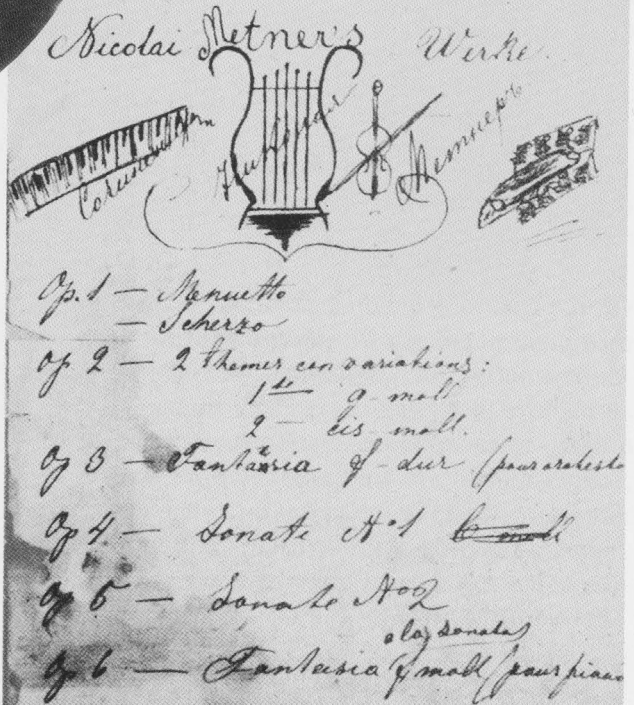 Nicolai Metner's Werke.
Сочиненiя
Николая
Метнеръ
Op. 1 — Menuetto
— Scherzo
Op 2 — 2 themes con variations:
1re g-moll
2 — cis-moll.
Op 3 — Fantasia f-dur (pour orchest
Op 4 — Sonate No1
Op 5 — Sonate No2
Op 6 — Fantasia f moll (a la sonata) (pour piano